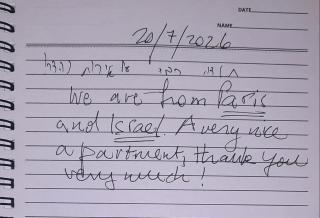 DATE
NAME
20/7/2026
We are from Paris
and Israel. A very nice
apartment, thank you
very much!